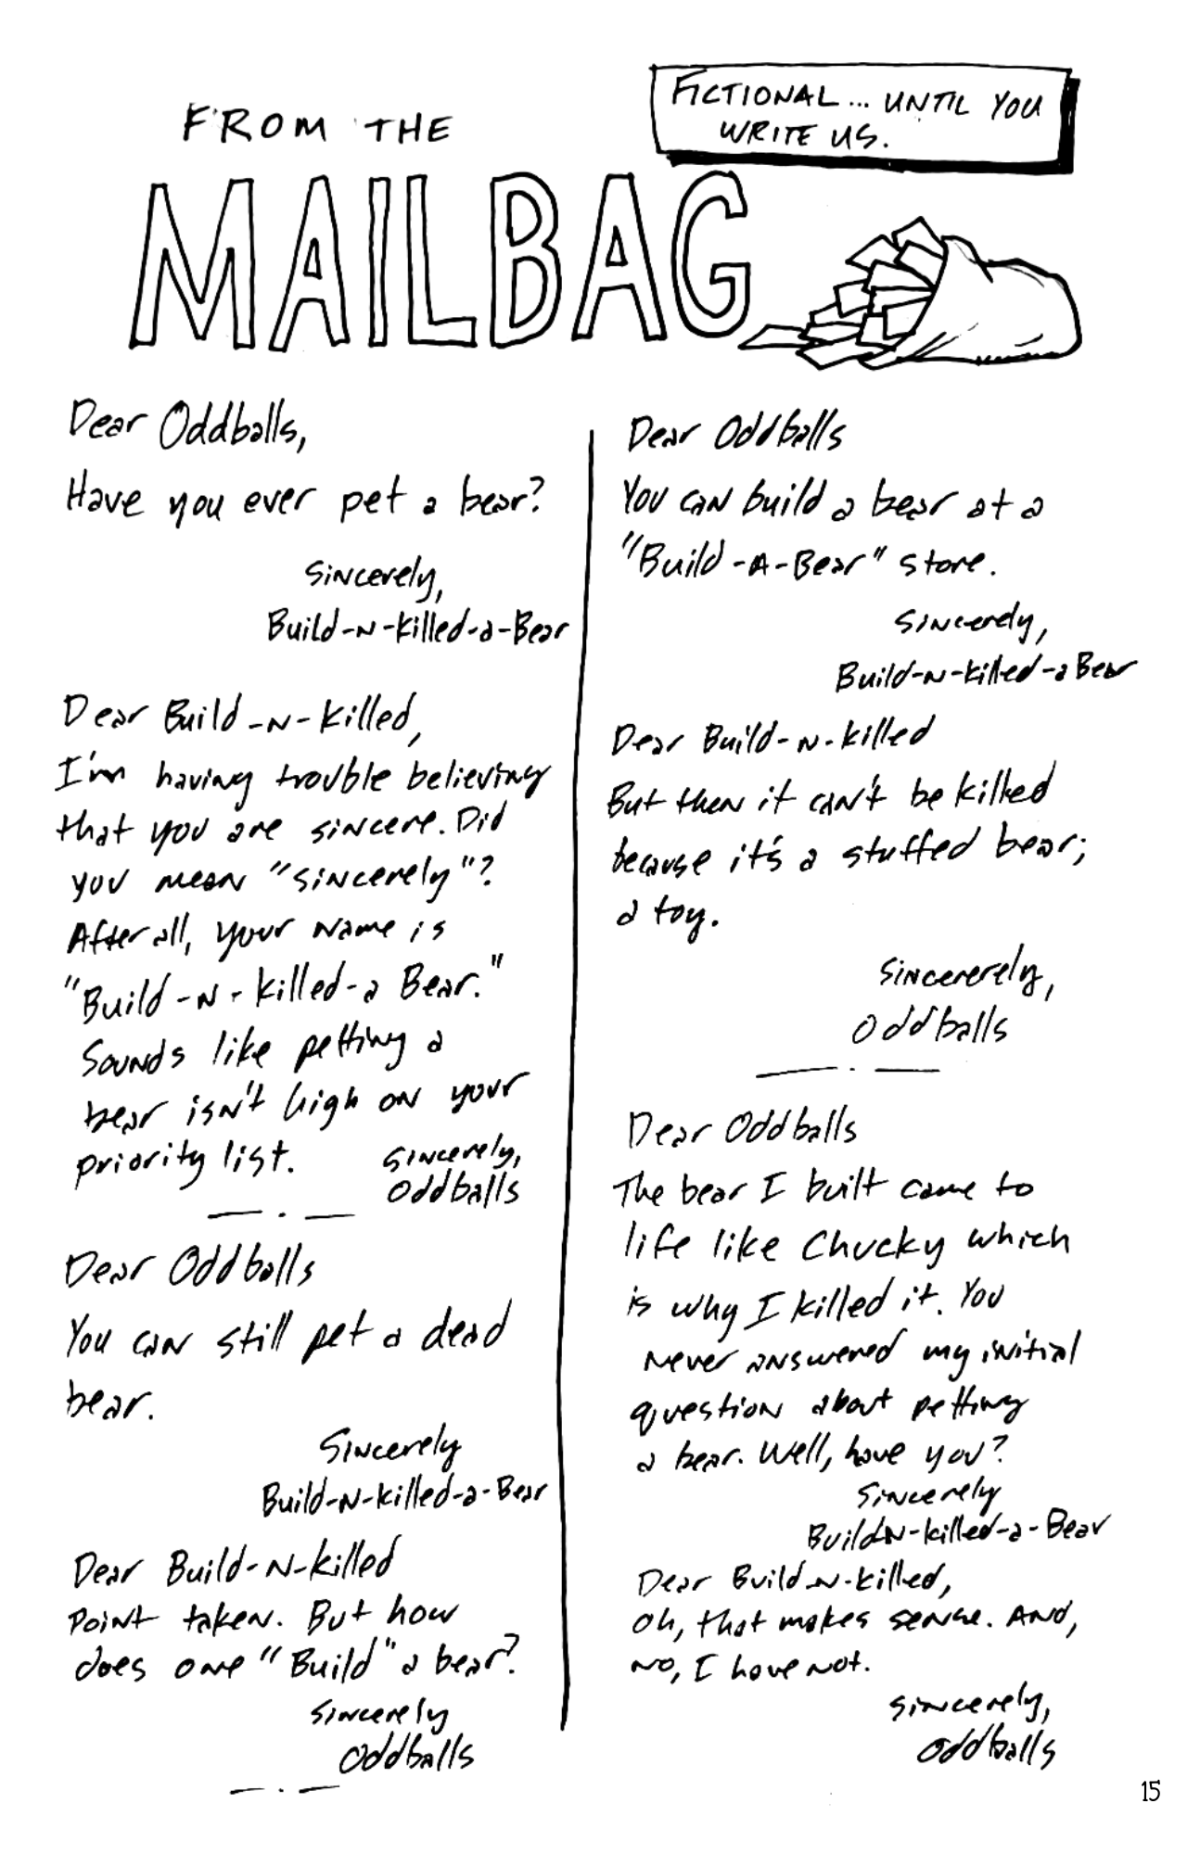 FROM THE
MAILBAG
FICTIONAL... UNTIL YOU
WRITE US.
Dear Oddballs,
Have you ever pet a bear?
Sincerely,
Build-N-killed-a-Bear
Dear Build-N-killed,
I'm having trouble believing
that you are sincere. Did
you mean "sincerely"?
After all, your name is
"Build-N-killed-a Bear."
Sounds like petting a
bear isn't high on your
priority list.
Sincerely,
Oddballs
Dear Oddballs
You can still pet a dead
bear.
Sincerely
Build-N-killed-a-Bear
Dear Build-N-killed
Point taken. But how
does one "Build" a bear?
Sincerely
Oddballs
Dear Oddballs
You can build a bear at a
"Build-A-Bear" store.
Sincerely,
Build-N-killed-a Bear
Dear Build-N-killed
But then it can't be killed
because it's a stuffed bear;
a toy.
Sincererely,
Oddballs
Dear Oddballs
The bear I built came to
life like Chucky which
is why I killed it. You
never answered my initial
question about petting
a bear. Well, have you?
Sincerely
Build-N-killed-a-Bear
Dear Build-N-killed,
Oh, that makes sense. And,
no, I have not.
Sincerely,
Oddballs
15